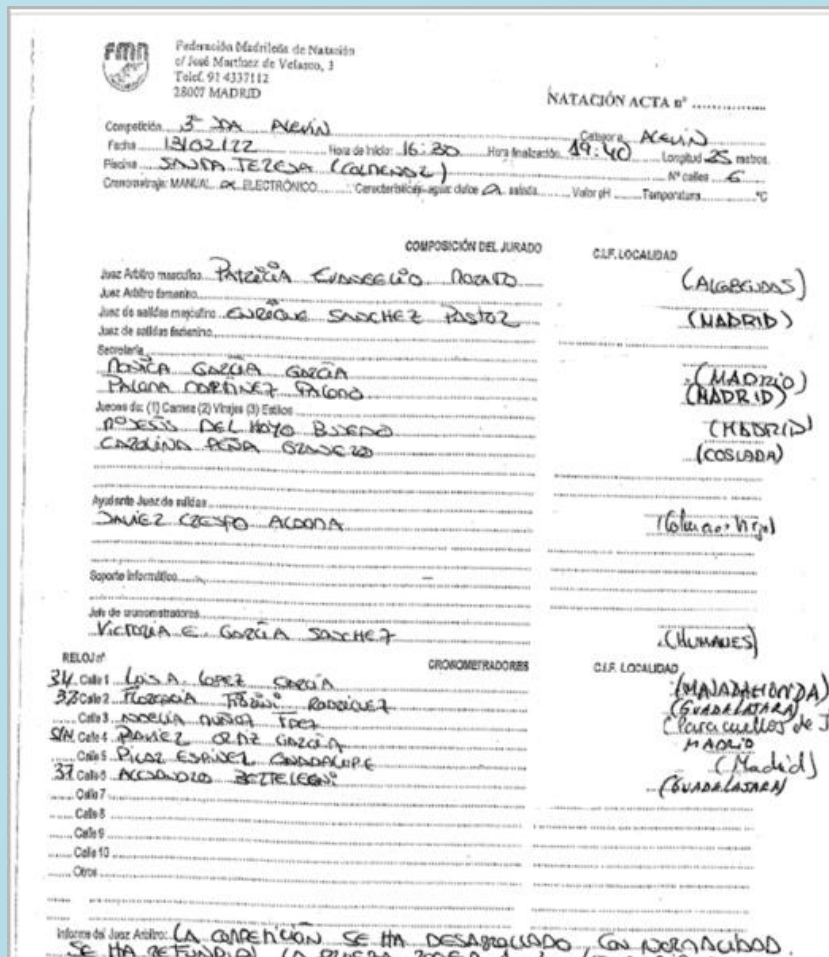 FMN
Federación Madrileña de Natación
c/ José Martínez de Velasco, 3
Teléf. 91 4337112
28007 MADRID
NATACIÓN ACTA nº
Competición 3ª JA ALEVÍN Categoría ALEVÍN
Fecha 13/02/22 Hora de Inicio: 16:30 Hora finalización 19:40 Longitud 25 metros
Piscina SANTA TERESA (COLMENAR) Nº calles 6
Cronometraje: MANUAL ELECTRÓNICO Características agua: dulce salada Valor pH Temperatura ºC
COMPOSICIÓN DEL JURADO C.I.F. LOCALIDAD
Juez Árbitro masculino PATRICIA EVANGELIO (ALCOBENDAS)
Juez Árbitro femenino
Juez de salidas masculino ENRIQUE SANCHEZ PASTOR (MADRID)
Juez de salidas femenino
Secretaría
MONICA GARCIA GARCIA (MADRID)
PALOMA MARTINEZ (MADRID)
Jueces de: (1) Carrera (2) Virajes (3) Estilos
Mº JESÚS DEL HOYO (MADRID)
CAROLINA PEÑA (COSLADA)
Ayudante Juez de salidas
JAVIER CRESPO (Colmenar Viejo)
Soporte Informático
Jefe de cronometradores
VICTORIA E. GARCÍA SANCHEZ (HUMANES)
RELOJ nº CRONOMETRADORES C.I.F. LOCALIDAD
34 Calle 1 LUIS A. LOPEZ GARCÍA (MAJADAHONDA)
Calle 2 RODRIGUEZ (GUADALAJARA)
Calle 3 NOELIA MUÑOZ (Paracuellos de J
S/N Calle 4 ORTIZ GARCÍA MADRID
Calle 5 PILAR ESPINEL GUADALUPE (Madrid)
37 Calle 6 (GUADALAJARA)
Calle 7
Calle 8
Calle 9
Calle 10
Otros
Informe del Juez Árbitro: LA COMPETICIÓN SE HA DESARROLLADO CON NORMALIDAD.
SE HA LA PRUEBA